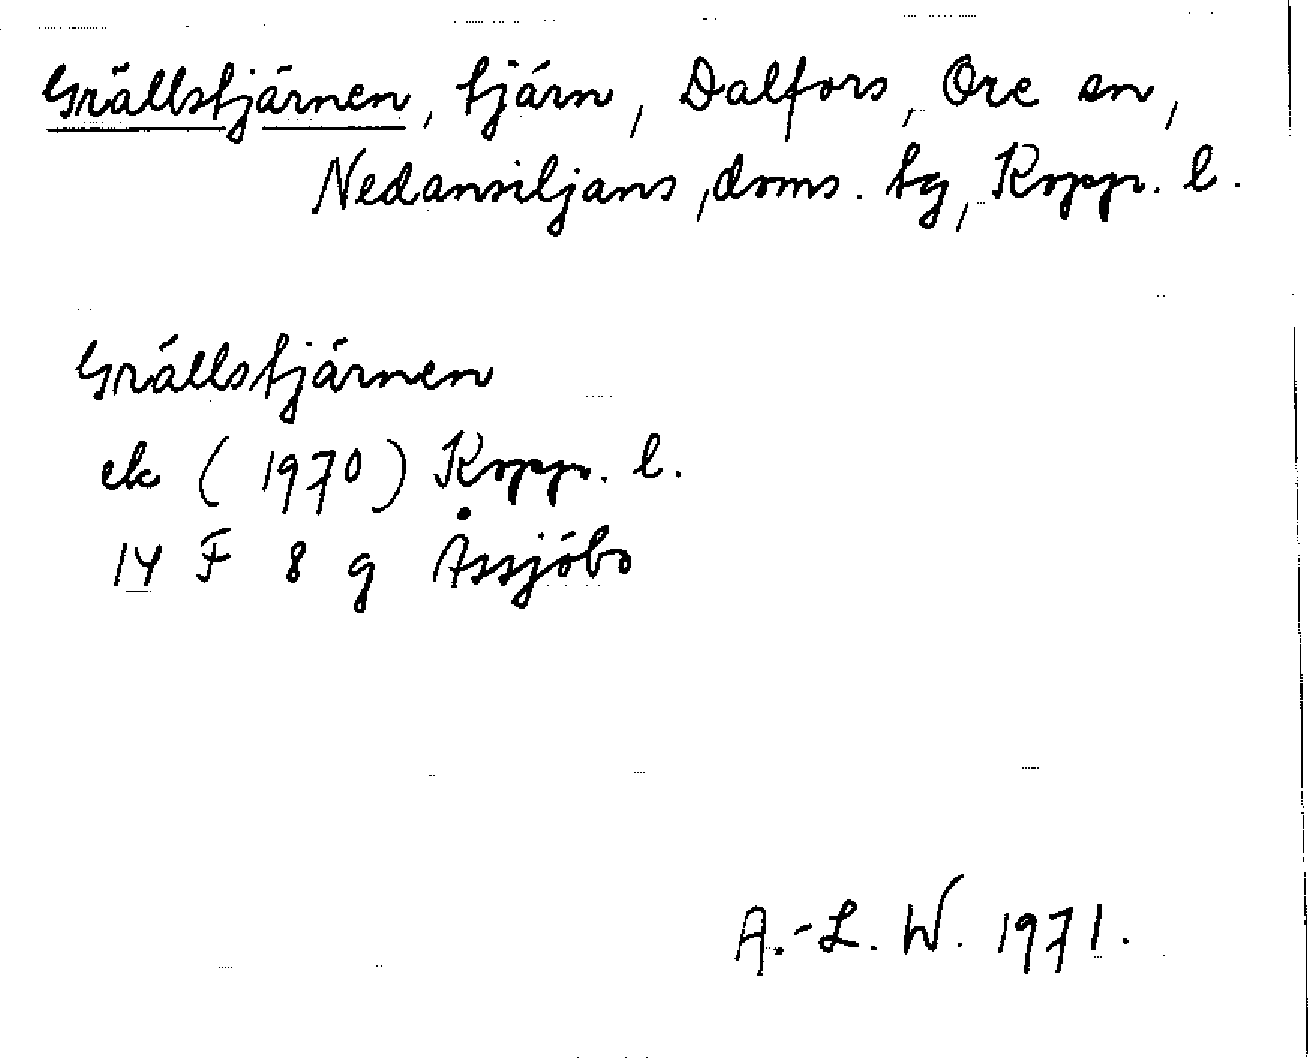 Grällstjärnen, tjärn, Dalfors, Ore sn,
Nedansiljans, doms. tg, Kopp. l.
Grällstjärnen
ek (1970) Kopp. l.
14 F 8 g Åssjöbo
A.-L. W. 1971.